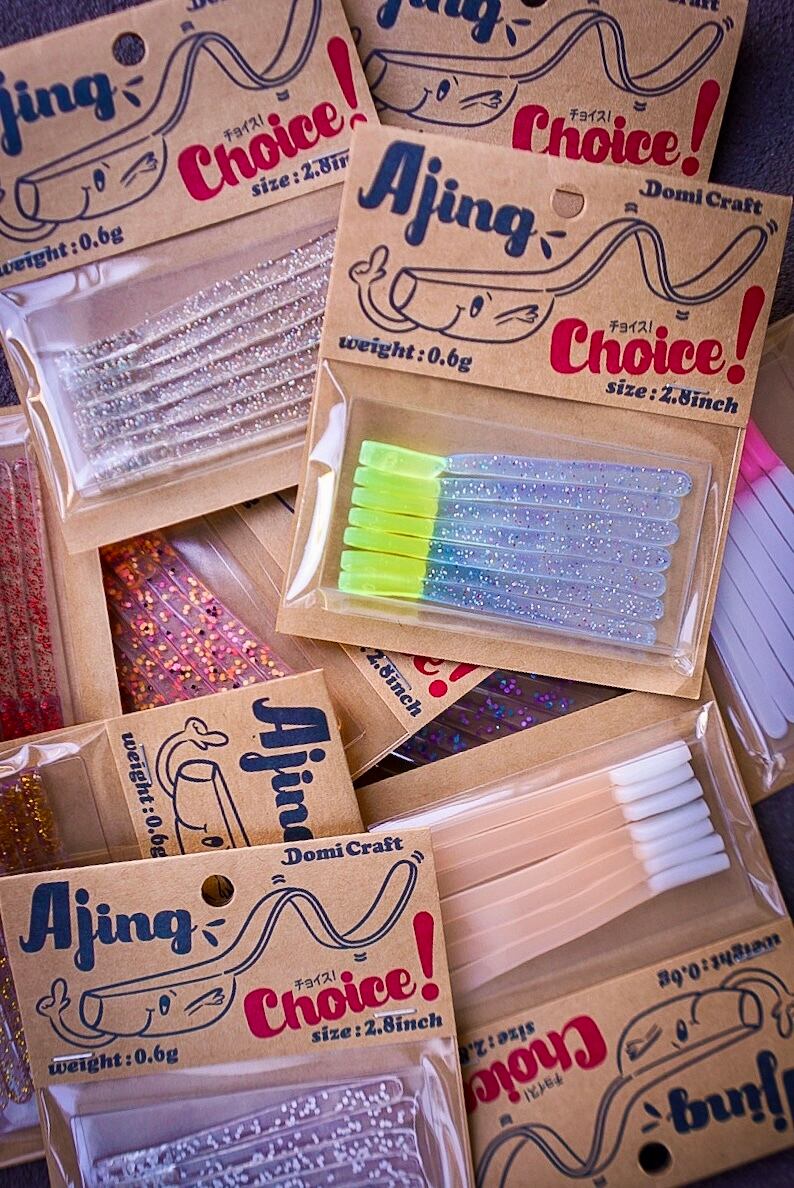 jing
チョイス!
Choice!
size:2.8in
weight:0.6g
Ajing
Craft
チョイス!
Choice!
Ajing
Domi Craft
チョイス!
Choice!
weight:0.6g
size:2.8inch
e!
2.8inch
Ajing
weight:0.6g
Ajing
Domi Craft
チョイス!
Choice!
size:2.8inch
weight:0.6g
weight:0.6g
size:2.8
チョイス!
Choice
Ajing